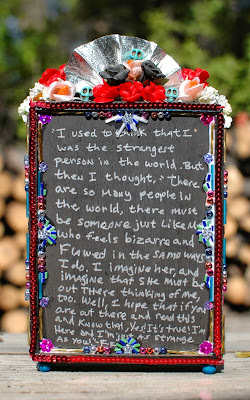 "I used to think that I
was the strangest
person in the world. But
then I thought, "There
are so many people in
the world, there must
be someone just like me
who feels bizarre and
flawed in the same ways
I do. I imagine her, and
imagine that she must be
out there thinking of me,
too. Well, I hope that if you
are out there and read this
and know that, Yes, it's true! I'm
Here and I'm just as strange
as you."